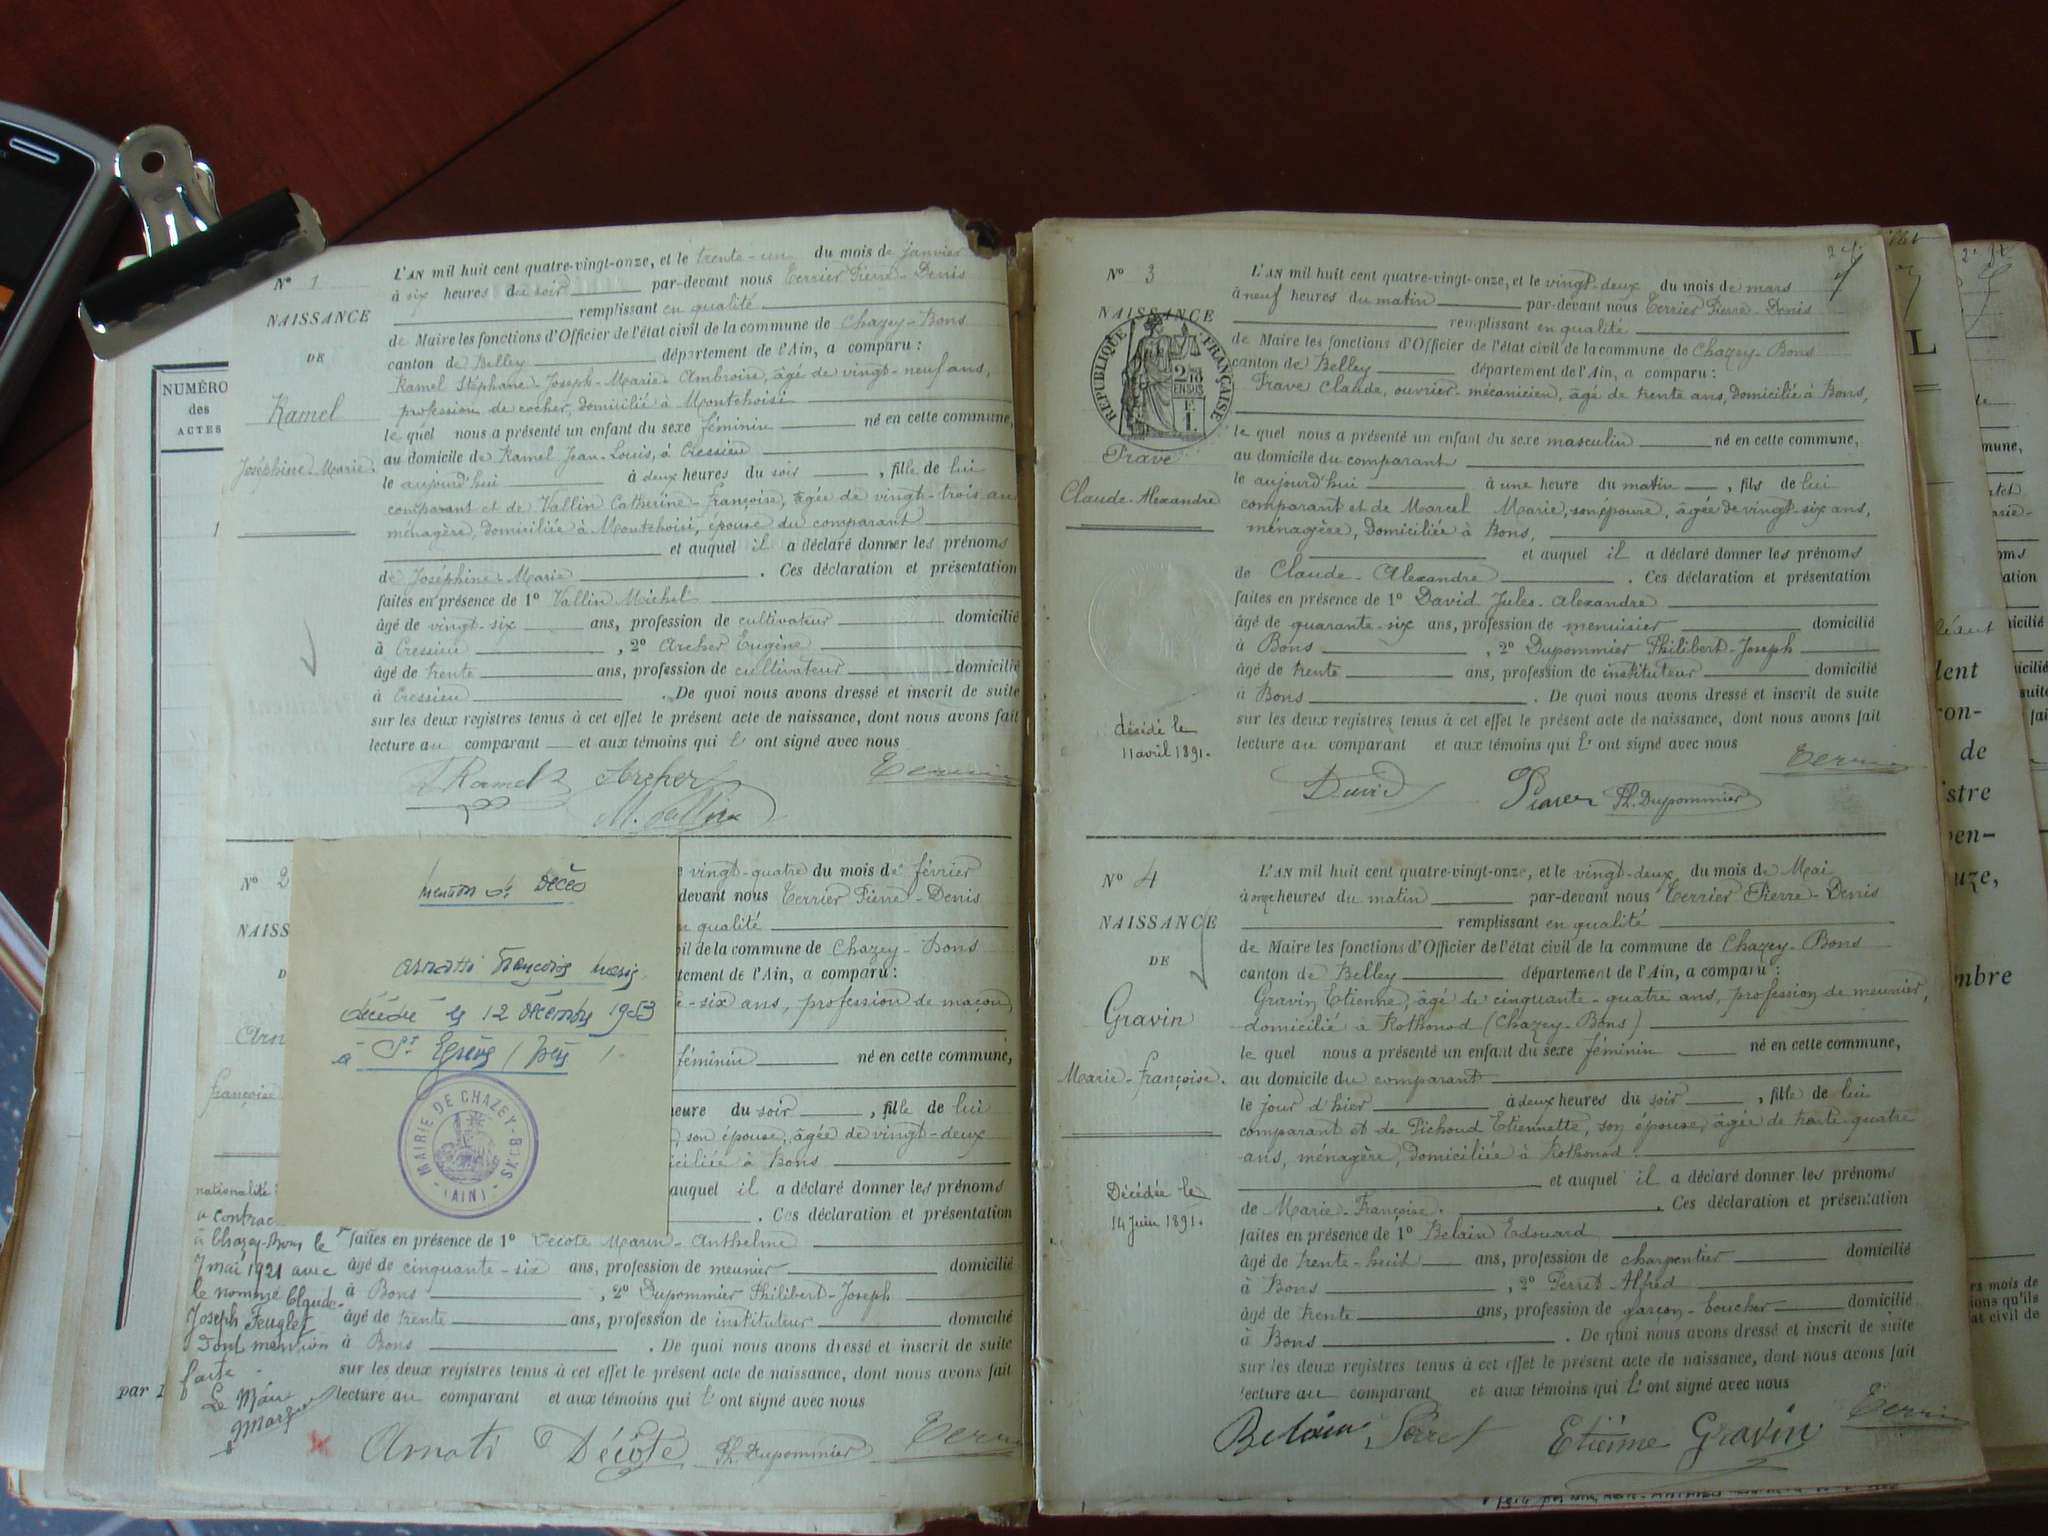 NUMÉRO
des
ACTES
1
par
N° 1
NAISSANCE
DE
Ramel
Joséphine-Marie.
L'AN mil huit cent quatre-vingt-onze, et le trente-un du mois de janvier
à six heures du soir par-devant nous Terrier Pierre-Denis
remplissant en qualité
de Maire les fonctions d'Officier de l'état civil de la commune de Chazey-Bons
canton de Belley département de l'Ain, a comparu :
Ramel Stéphane-Joseph-Marie-Ambroise, âgé de vingt-neuf ans,
profession de cocher, domicilié à Montchoisi
le quel nous a présenté un enfant du sexe féminin né en cette commune,
au domicile de Ramel Jean-Louis, à Cressieu
le aujourd'hui à deux heures du soir, fille de lui
comparant et de Vallin Catherine-Françoise, âgée de vingt-trois ans
ménagère, domiciliée à Montchoisi, épouse du comparant
et auquel il a déclaré donner les prénoms
de Joséphine-Marie. Ces déclaration et présentation
faites en présence de 1° Vallin Michel
âgé de vingt-six ans, profession de cultivateur domicilié
à Cressieu, 2° Archer Eugène
âgé de trente ans, profession de cultivateur domicilié
à Cressieu. De quoi nous avons dressé et inscrit de suite
sur les deux registres tenus à cet effet le présent acte de naissance, dont nous avons fait
lecture au comparant et aux témoins qui l'ont signé avec nous
Ramel Archer Terrier
M. Vallin
N° 2
NAISS
D
Arn
françoise
vingt-quatre du mois de février
devant nous Terrier Pierre-Denis
n qualité
il de la commune de Chazey-Bons
tement de l'Ain, a comparu :
-six ans, profession de maçon,
féminin né en cette commune,
heure du soir, fille de lui
son épouse, âgée de vingt-deux
ciliée à Bons
auquel il a déclaré donner les prénoms
. Ces déclaration et présentation
faites en présence de 1° Décote Marin-Anthelme
âgé de cinquante-six ans, profession de meunier domicilié
à Bons, 2° Dupommier Philibert-Joseph
âgé de trente ans, profession de instituteur domicilié
à Bons. De quoi nous avons dressé et inscrit de suite
sur les deux registres tenus à cet effet le présent acte de naissance, dont nous avons fait
lecture au comparant et aux témoins qui l'ont signé avec nous
Arnati Décote Ph. Dupommier Terrier
nationalité
a contrac
à Chazey-Bons le
7 mai 1921 avec
le nommé Claude-
Joseph Feuglet
Dont mention
faite
Le Maire
mention de Décès
décédé le 12 décembre 1953
à St Egrève
MAIRIE DE CHAZEY-BONS
(AIN)
N° 3
NAISSANCE
RÉPUBLIQUE FRANÇAISE
Frave
Claude-Alexandre
décédé le
11 avril 1891.
L'AN mil huit cent quatre-vingt-onze, et le vingt-deux du mois de mars
à neuf heures du matin par-devant nous Terrier Pierre-Denis
remplissant en qualité
de Maire les fonctions d'Officier de l'état civil de la commune de Chazey-Bons
canton de Belley département de l'Ain, a comparu :
Frave Claude, ouvrier-mécanicien, âgé de trente ans, domicilié à Bons,
le quel nous a présenté un enfant du sexe masculin né en cette commune,
au domicile du comparant
le aujourd'hui à une heure du matin, fils de lui
comparant et de Marcel Marie, son épouse, âgée de vingt-six ans,
ménagère, domiciliée à Bons,
et auquel il a déclaré donner les prénoms
de Claude-Alexandre. Ces déclaration et présentation
faites en présence de 1° David Jules-Alexandre
âgé de quarante-six ans, profession de menuisier domicilié
à Bons, 2° Dupommier Philibert-Joseph
âgé de trente ans, profession de instituteur domicilié
à Bons. De quoi nous avons dressé et inscrit de suite
sur les deux registres tenus à cet effet le présent acte de naissance, dont nous avons fait
lecture au comparant et aux témoins qui l'ont signé avec nous
David Ph. Dupommier Terrier
N° 4
NAISSANCE
DE
Gravin
Marie-Françoise.
Décédée le
14 Juin 1891.
L'AN mil huit cent quatre-vingt-onze, et le vingt-deux du mois de Mai
à onze heures du matin par-devant nous Terrier Pierre-Denis
remplissant en qualité
de Maire les fonctions d'Officier de l'état civil de la commune de Chazey-Bons
canton de Belley département de l'Ain, a comparu :
Gravin Etienne, âgé de cinquante-quatre ans, profession de meunier,
domicilié à Rothonod (Chazey-Bons)
le quel nous a présenté un enfant du sexe féminin né en cette commune,
au domicile du comparant
le jour d'hier à deux heures du soir, fille de lui
comparant et de Pichoud Etiennette, son épouse, âgée de trente-quatre
ans, ménagère, domiciliée à Rothonod
et auquel il a déclaré donner les prénoms
de Marie-Françoise. Ces déclaration et présentation
faites en présence de 1° Belain Edouard
âgé de trente-huit ans, profession de charpentier domicilié
à Bons, 2° Perret Alfred
âgé de trente ans, profession de garçon-boucher domicilié
à Bons. De quoi nous avons dressé et inscrit de suite
sur les deux registres tenus à cet effet le présent acte de naissance, dont nous avons fait
lecture au comparant et aux témoins qui l'ont signé avec nous
Belain Perret Etienne Gravin Terrier